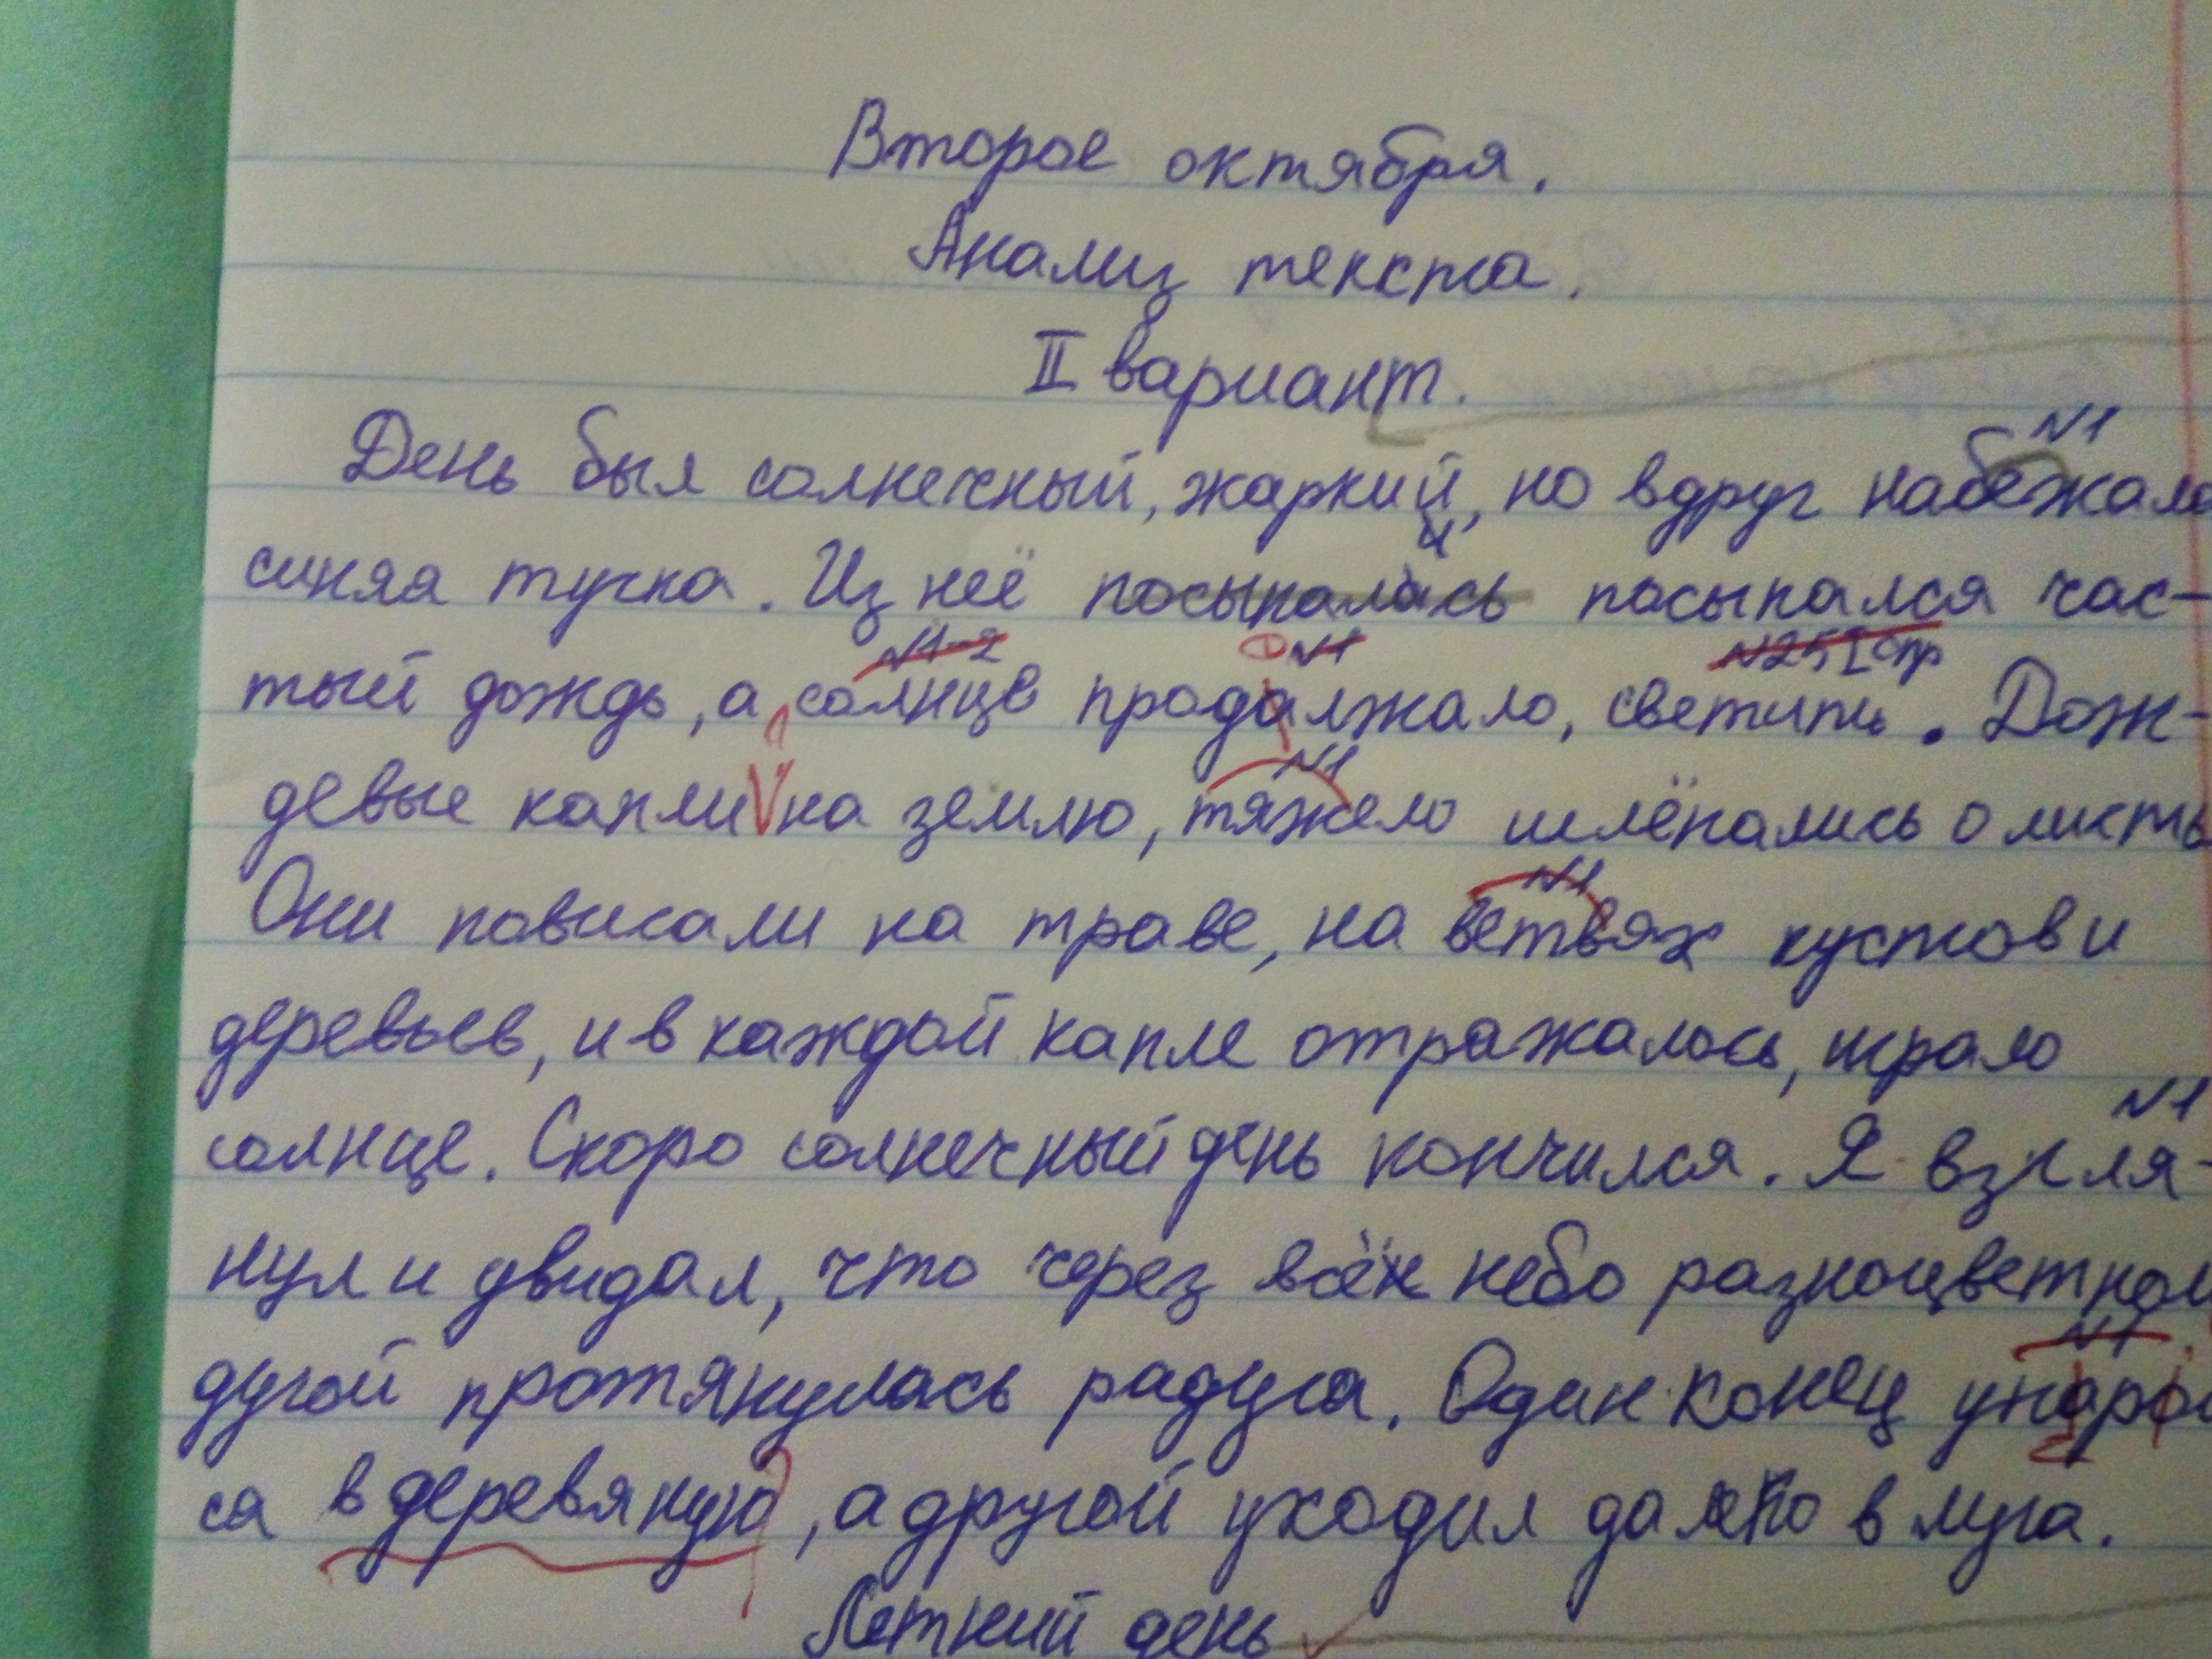 Второе октября.
Анализ текста.
II вариант.
N1
День был солнечный, жаркий, но вдруг набежала
синяя тучка. Из неё посыпалась посыпался час-
N1-2 N1 N25 I спр
тый дождь, а солнце продалжало, светить. Дож-
N1
девые капли на землю, тяжело шлёпались о листь
N1
Они повисали на траве, на ветвях кустов и
деревьев, и в каждой капле отражалось, играло
N1
солнце. Скоро солнечный день кончился. Я взгля-
нул и увидал, что через всё небо разноцветной
N1
дугой протянулась радуга. Один конец
са в деревяную, а другой уходил далеко в луга.
Летний день